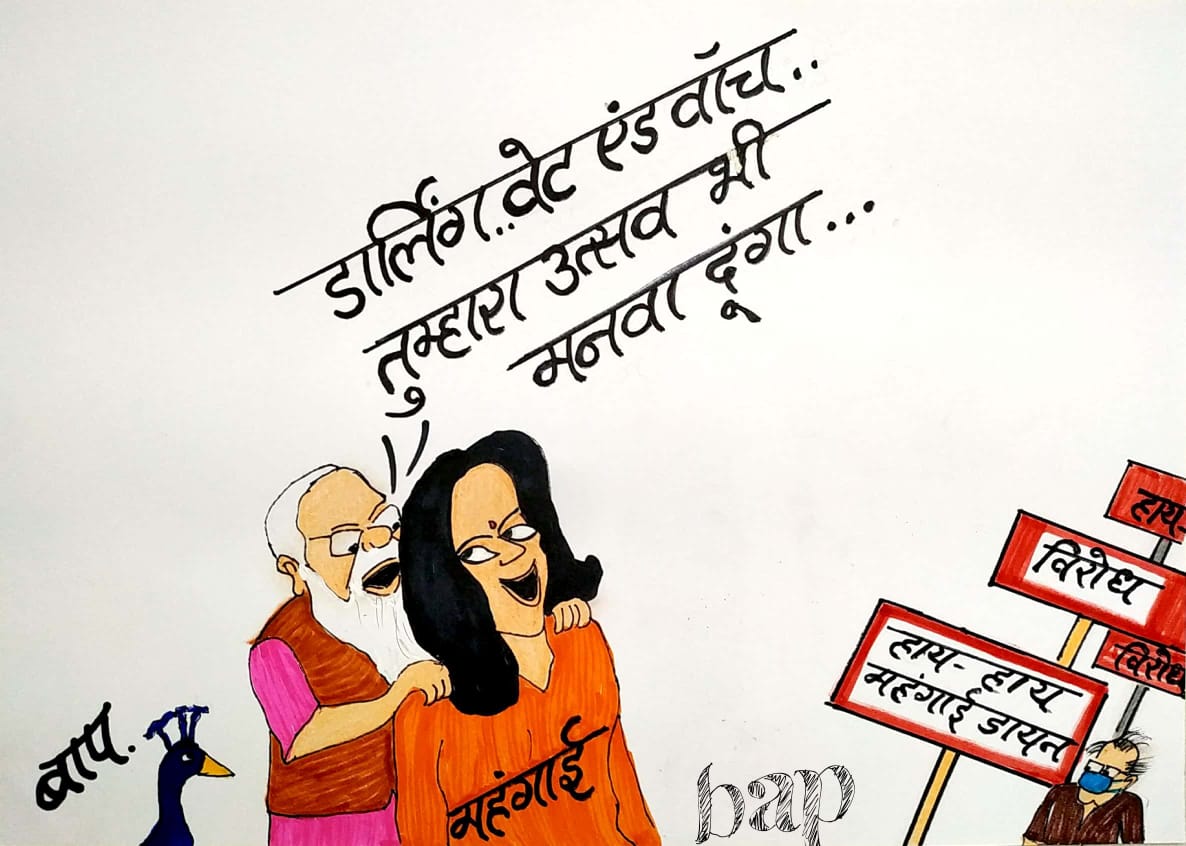 डार्लिंग..वेट एंड वॉच..
तुम्हारा उत्सव भी
मनवा दूंगा...
हाय-
विरोध
विरोध
हाय-हाय
महंगाई डायन
बाप.
महंगाई
bap